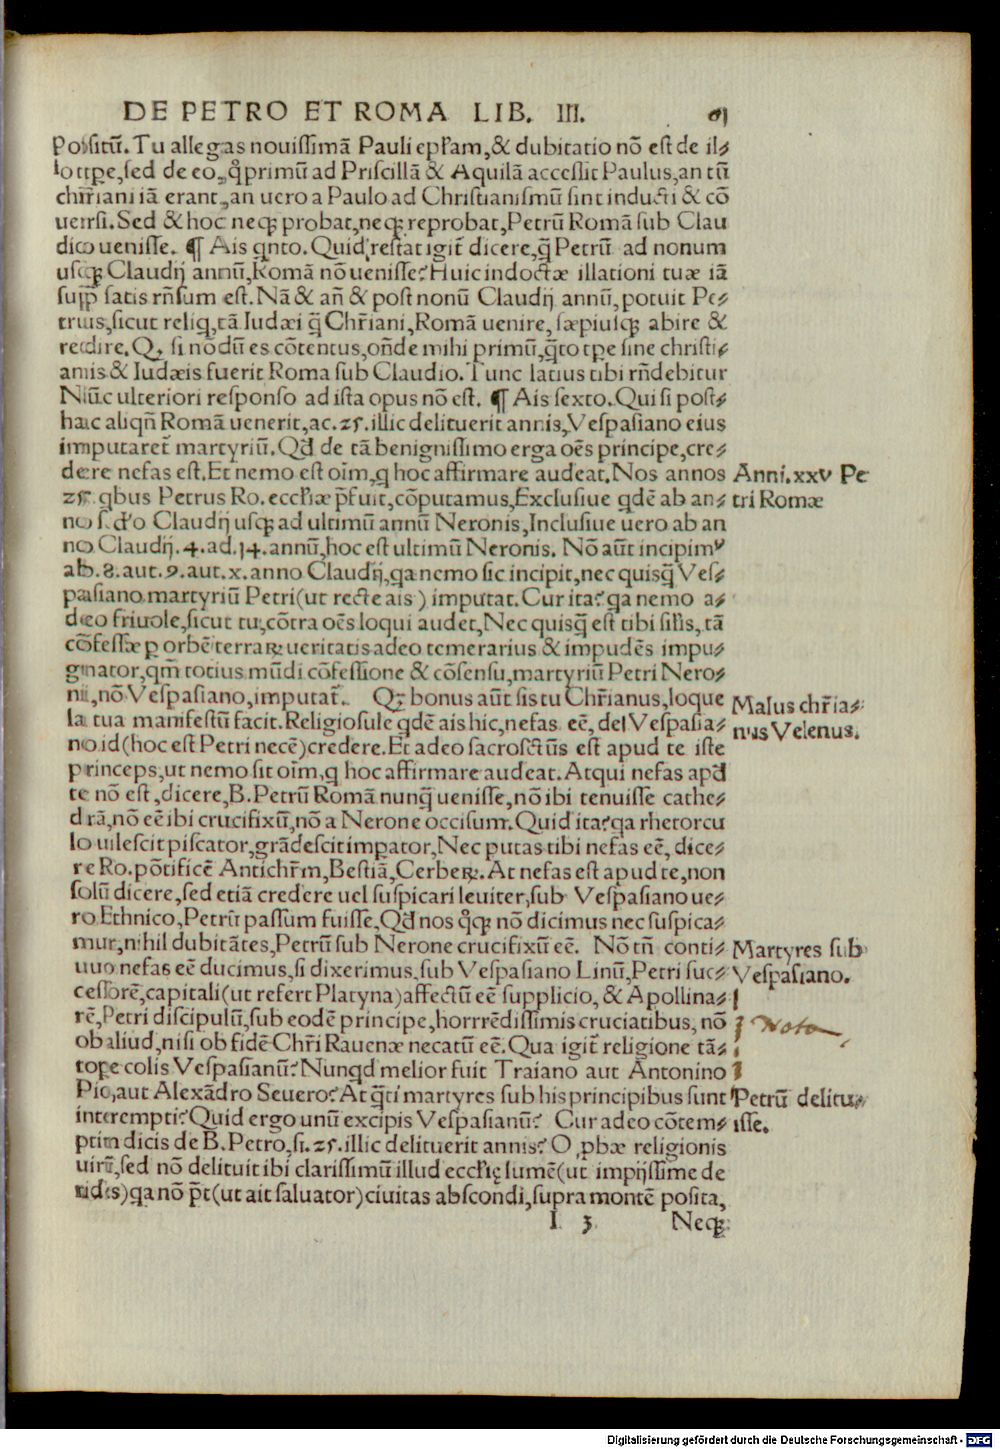 DE PETRO ET ROMA LIB. III. 61
possitū. Tu allegas nouissimā Pauli epl̃am, & dubitatio nō est de il⸗
lo tꝑe, sed de eo, qđ primū ad Priscillā & Aquilā accessit Paulus, an tū
chr̃iani iā erant, an uero a Paulo ad Christianismū sint inducti & cō
uersi. Sed & hoc neqꝫ probat, neqꝫ reprobat, Petrū Romā sub Clau
dio uenisse. ¶ Ais qnto. Quid restat igit̃ dicere, q̃ Petrū ad nonum
usqꝫ Claudij annū, Romā nō uenisse? Huic indoctæ illationi tuæ iā
sup̃ satis rñsum est. Nā & añ & post nonū Claudij annū, potuit Pe⸗
trus, sicut reliq, tā Iudæi q̃ Chr̃iani, Romā uenire, sæpiusqꝫ abire &
redire. Qꝫ si nōdū es cōtentus, oñde mihi primū, q̃to tꝑe sine christi⸗
anis & Iudæis fuerit Roma sub Claudio. Tunc latius tibi rñdebitur
Nūc ulteriori responso ad ista opus nō est. ¶ Ais sexto. Qui si post⸗
hac aliqñ Romā uenerit, ac .25. illic delituerit annis, Vespasiano eius
imputaret̃ martyriū. Qđ de tā benignissimo erga oẽs principe, cre⸗
dere nefas est. Et nemo est oĩm, q hoc affirmare audeat. Nos annos
25. qbus Petrus Ro. eccl̃iæ p̃fuit, cōputamus, Exclusiue qdẽ ab an⸗
no scđo Claudij usqꝫ ad ultimū annū Neronis, Inclusiue uero ab an
no Claudij .4. ad .14. annū, hoc est ultimū Neronis. Nō aũt incipimꝰ
ab .8. aut .9. aut .x. anno Claudij, qa nemo sic incipit, nec quisq̃ Ves⸗
pasiano martyriū Petri (ut recte ais) imputat. Cur ita? qa nemo a⸗
deo friuole, sicut tu, cōtra oẽs loqui audet, Nec quisq̃ est tibi silis, tā
cōfessæ ꝑ orbẽ terraꝝ ueritatis adeo temerarius & impudẽs impu⸗
gnator, qm̃ totius mūdi cōfessione & cōsensu, martyriū Petri Nero⸗
ni, nō Vespasiano, imputat̃. Qꝫ bonus aũt sis tu Chr̃ianus, loque
la tua manifestū facit. Religiosule qdẽ ais hic, nefas eẽ, de Vespasia⸗
no id (hoc est Petri necẽ) credere. Et adeo sacrosctūs est apud te iste
princeps, ut nemo sit oĩm, q hoc affirmare audeat. Atqui nefas apđ
te nō est, dicere, B. Petrū Romā nunq̃ uenisse, nō ibi tenuisse cathe⸗
drā, nō eẽ ibi crucifixū, nō a Nerone occisum. Quid ita? qa rhetorcu
lo uilescit piscator, grādescit impator, Nec putas tibi nefas eẽ, dice⸗
re Ro. pōtificẽ Antichr̃m, Bestiā, Cerbeꝝ. At nefas est apud te, non
solū dicere, sed etiā credere uel suspicari leuiter, sub Vespasiano ue⸗
ro Ethnico, Petrū passum fuisse, Qđ nos qͦqꝫ nō dicimus nec suspica⸗
mur, nihil dubitātes, Petrū sub Nerone crucifixū eẽ. Nō tñ conti⸗
uuo nefas eẽ ducimus, si dixerimus, sub Vespasiano Linū, Petri suc⸗
cessorẽ, capitali (ut refert Platyna) affectū eẽ supplicio, & Apollina⸗
rẽ, Petri discipulū, sub eodẽ principe, horrrẽdissimis cruciatibus, nō
ob aliud, nisi ob fidẽ Chr̃i Rauenæ necatū eẽ. Qua igit̃ religione tā⸗
tope colis Vespasianū? Nunqd melior fuit Traiano aut Antonino
Pio, aut Alexādro Seuero? At q̃ti martyres sub his principibus sunt
interempti? Quid ergo unū excipis Vespasianū? Cur adeo cōtem⸗
ptim dicis de B. Petro, si .25. illic delituerit annis? O ꝓbæ religionis
uirū, sed nō delituit ibi clarissimū illud eccl̃ię lumẽ (ut impijssime de
rides) qa nō p̃t (ut ait saluator) ciuitas abscondi, supra montẽ posita,
I 3 Neqꝫ
Anni .xxv Pe
tri Romæ
Malus chr̃ia⸗
nus Velenus.
Martyres sub
Vespasiano.
Nota
Petrū delitu⸗
isse.
Digitalisierung gefördert durch die Deutsche Forschungsgemeinschaft - DFG